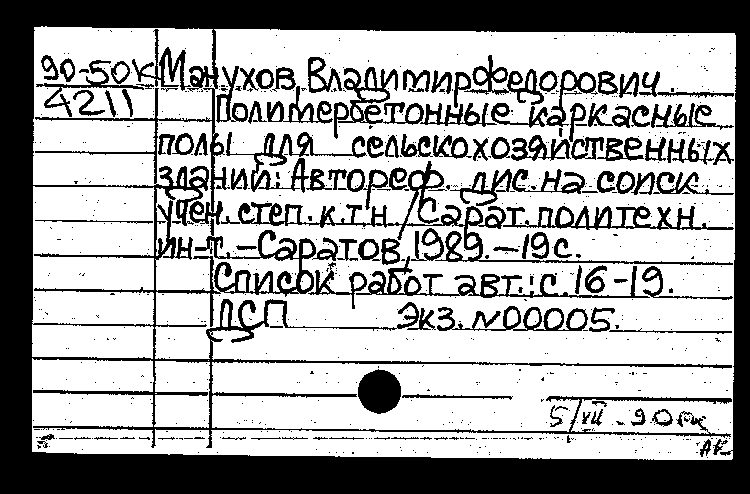 90-50К Манухов, Владимир Федорович.
4211 Полимербетонные каркасные
полы для сельскохозяйственных
зданий: Автореф. дис. на соиск.
учен. степ. к.т.н. / Сарат. политехн.
ин-т. – Саратов, 1989. – 19 с.
Список работ авт.: с. 16-19.
ДСП Экз. N00005.
5/VII - 90
АК